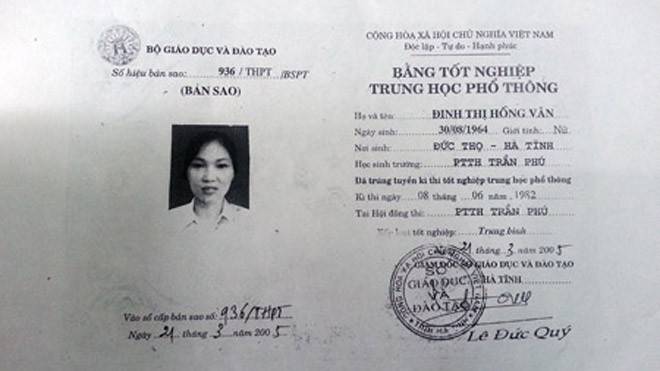 BỘ GIÁO DỤC VÀ ĐÀO TẠO
Số hiệu bản sao: 936/THPT/BSPT
(BẢN SAO)
Vào sổ cấp bản sao số: 936/THPT
Ngày 21 tháng 3 năm 2005
CỘNG HÒA XÃ HỘI CHỦ NGHĨA VIỆT NAM
Độc lập - Tự do - Hạnh phúc
BẰNG TỐT NGHIỆP
TRUNG HỌC PHỔ THÔNG
Họ và tên: ĐINH THỊ HỒNG VÂN
Ngày sinh: 30/08/1964 Giới tính: Nữ
Nơi sinh: ĐỨC THỌ - HÀ TĨNH
Học sinh trường: PTTH TRẦN PHÚ
Đã trúng tuyển kì thi tốt nghiệp trung học phổ thông
Kì thi ngày 08 tháng 06 năm 1982
Tại Hội đồng thi: PTTH TRẦN PHÚ
Xếp loại tốt nghiệp: Trung bình
21 tháng 3 năm 2005
GIÁM ĐỐC SỞ GIÁO DỤC VÀ ĐÀO TẠO
HÀ TĨNH
SỞ
GIÁO DỤC
VÀ
ĐÀO TẠO
Lê Đức Quý